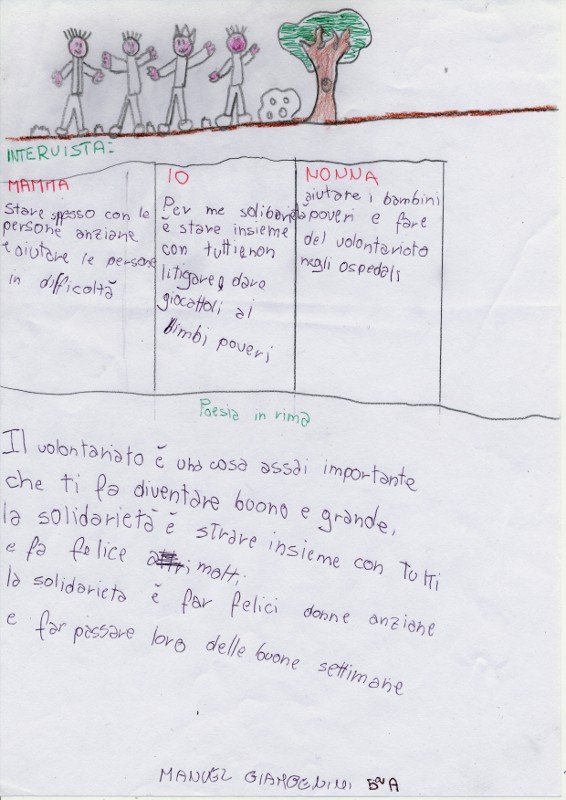 INTERVISTA:
MAMMA
Stare spesso con le
persone anziane
e aiutare le persone
in difficoltà
IO
Per me solidarietà
è stare insieme
con tutti e non
litigare, dare
giocattoli ai
bimbi poveri
NONNA
aiutare i bambini
poveri e fare
del volontariato
negli ospedali
Poesia in rima
Il volontariato è una cosa assai importante
che ti fa diventare buono e grande,
la solidarietà è strare insieme con Tutti
e fa felice matti.
la solidarietà è far felici donne anziane
e far passare loro delle buone settimane
MANUEL 5ªA